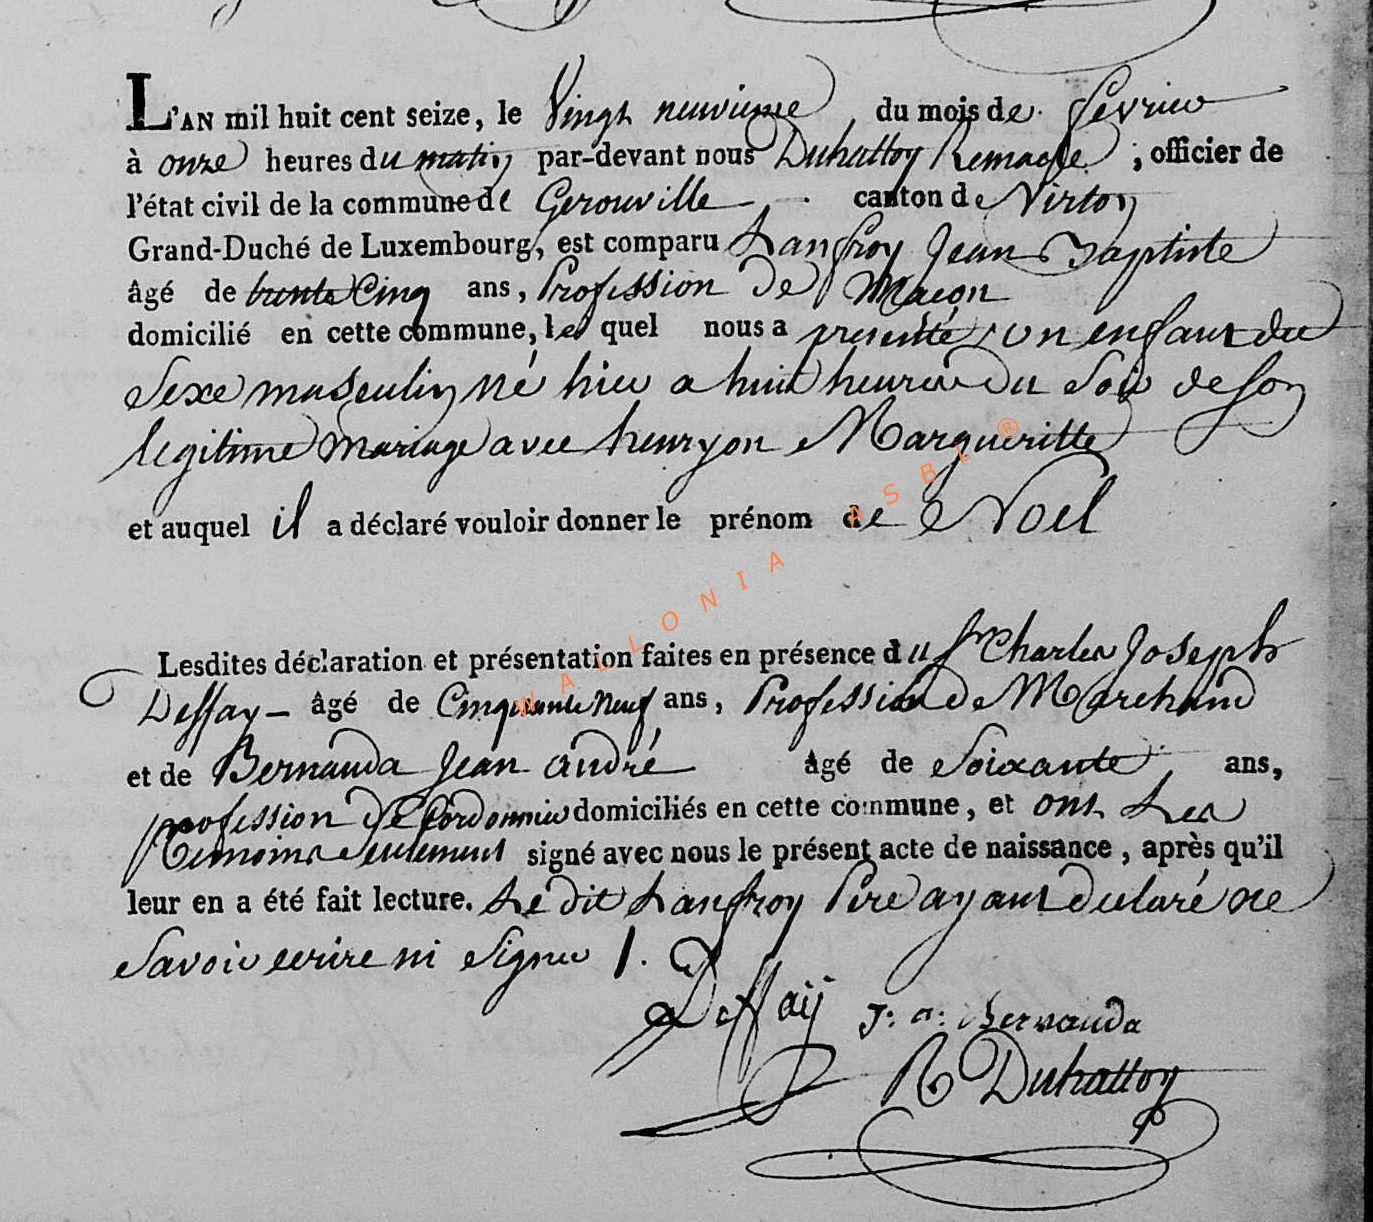 L'AN mil huit cent seize, le Vingt neuvieme du mois de fevrier
à onze heures du matin par-devant nous Duhattoy Remacle, officier de
l'état civil de la commune de Gerouville canton de Virton
Grand-Duché de Luxembourg, est comparu Lanfroy Jean Baptiste
âgé de trente Cinq ans, Profession de Maçon
domicilié en cette commune, le quel nous a presenté un enfant du
Sexe masculin né hier a huit heures du Soir de son
legitime mariage avec henryon Margueritte
et auquel il a déclaré vouloir donner le prénom de Noel
Lesdites déclaration et présentation faites en présence du Sr Charles Joseph
Deffay - âgé de Cinquante Neuf ans, Profession de Marchand
et de Bernauda Jean andré âgé de Soixante ans,
profession de Cordonnier domiciliés en cette commune, et ont Les
Temoins Seulement signé avec nous le présent acte de naissance, après qu'il
leur en a été fait lecture. Le dit Lanfroy Pere ayant declaré ne
Savoir ecrire ni Signer /.
Deffaÿ J: a: Bernauda
R Duhattoy
WALLONIA ASBL ®